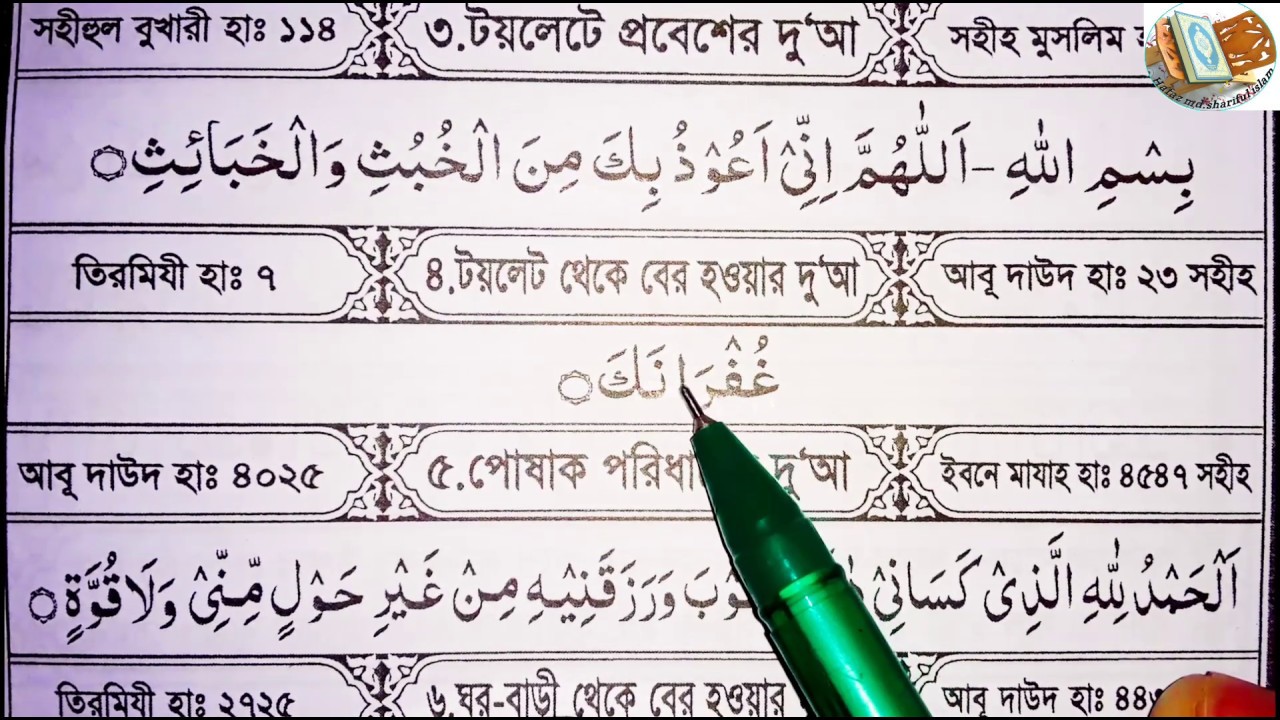 সহীহুল বুখারী হাঃ ১১৪ ৩.টয়লেটে প্রবেশের দু‘আ সহীহ মুসলিম
Hafaz md.shariful islam
بِسْمِ اللّٰهِ -اَللّٰهُمَّ اِنِّىْ اَعُوْذُ بِكَ مِنَ الْخُبُثِ وَالْخَبَائِثِ
তিরমিযী হাঃ ৭ ৪.টয়লেট থেকে বের হওয়ার দু‘আ আবূ দাউদ হাঃ ২৩ সহীহ
غُفْرَانَكَ
আবূ দাউদ হাঃ ৪০২৫ ৫.পোষাক দু‘আ ইবনে মাযাহ হাঃ ৪৫৪৭ সহীহ
اَلْحَمْدُ لِلّٰهِ الَّذِىْ كَسَانِىْ وَرَزَقَنِيْهِ مِنْ غَيْرِ حَوْلٍ مِّنِّىْ وَلَا قُوَّةٍ
তিরমিযী হাঃ ২৭২৫ ৬.ঘর-বাড়ী থেকে বের হওয়ার আবূ দাউদ হাঃ